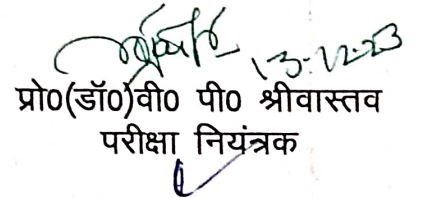 13-12-23
प्रो०(डॉ०)वी० पी० श्रीवास्तव
परीक्षा नियंत्रक